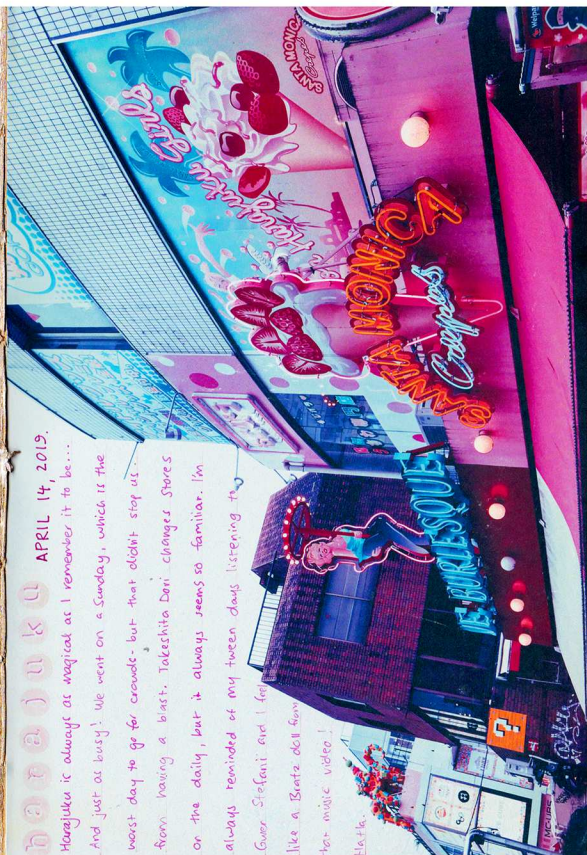 harajuku
APRIL 14, 2019.
Harajuku is always as magical as I remember it to be...
And just as busy! We went on a Sunday, which is the
worst day to go for crowds - but that didn't stop us
from having a blast. Takeshita Dori changes stores
on the daily, but it always seems so familiar. I'm
always reminded of my tween days listening to
Gwen Stefani and I feel
like a Bratz doll from
that music video!
Hatta.
SANTA MONICA
Crepes
Harajuku Girls
SANTA MONICA
Crepes
LE BURLESQUE
?